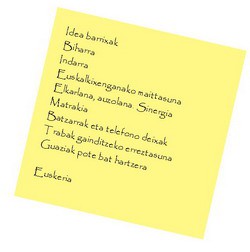 Idea barrixak
Biharra
Indarra
Euskalkixenganako maittasuna
Elkarlana, auzolana. Sinergia
Matrakia
Batzarrak eta telefono deixak
Trabak gainditzeko erreztasuna
Guaziak pote bat hartzera
Euskeria